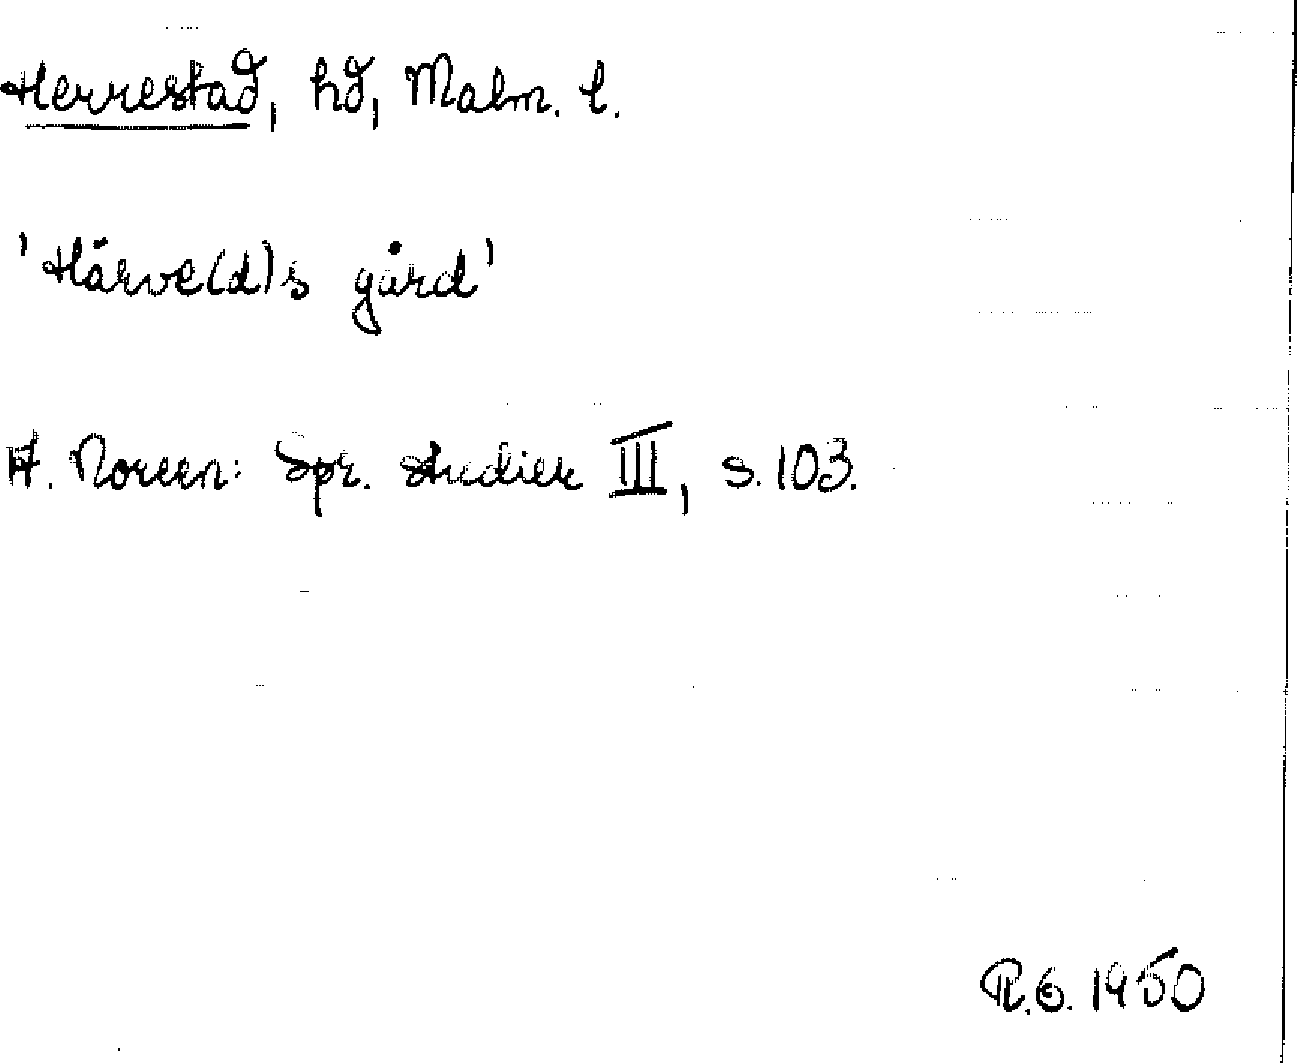 Herrestad, hd, Malm. l.
'Härve(d)s gård'
A. Noreen: Spr. studier III, s. 103.
R.G. 1950